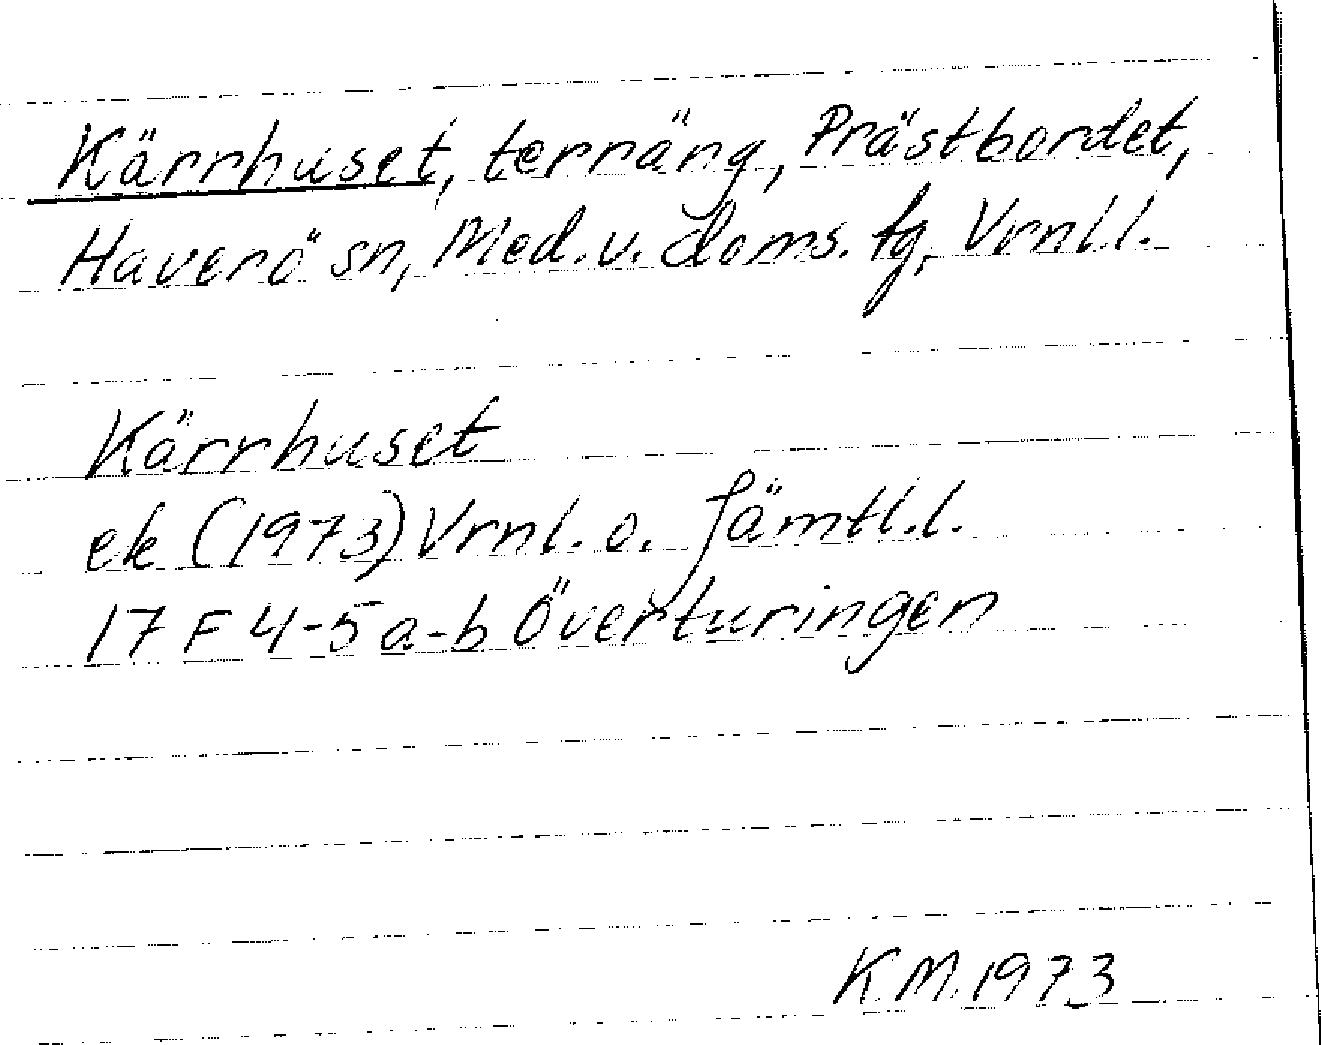 Kärrhuset, terräng, Prästbordet,
Haverö sn, Med. v. doms. tg, Vrnl l.
Kärrhuset
ek (1973) Vrnl. o. Jämtl. l.
17 F 4-5 a-b Överturingen
K.M. 1973